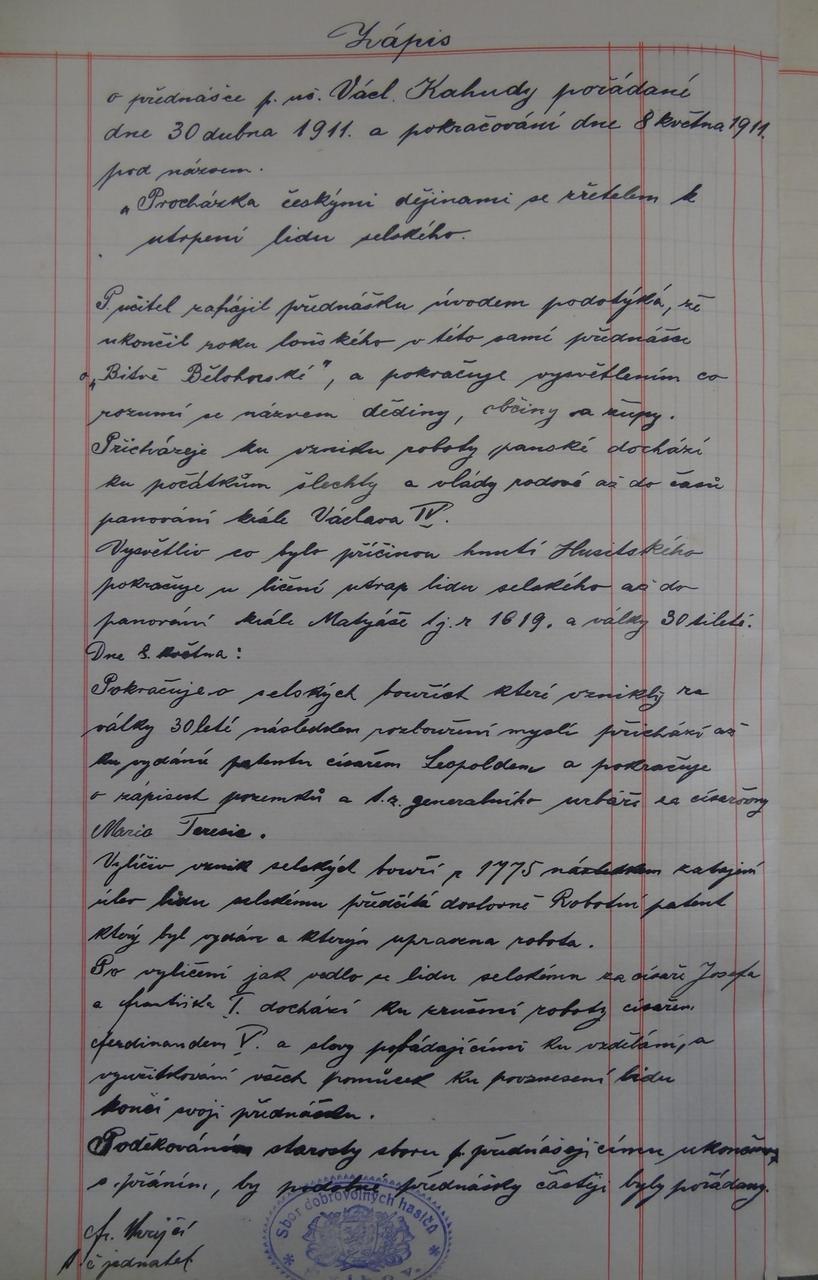 Zápis
o přednášce p. uč. Václ. Kahudy pořádané
dne 30 dubna 1911. a pokračování dne 8 května 1911.
pod názvem.
„Procházka českými dějinami se zřetelem k
utrpení lidu selského.
P. učitel zahájil přednášku úvodem podotýká, že
ukončil roku loňského v této samé přednášce
o „Bitvě Bělohorské", a pokračuje vysvětlením co
rozumí se názvem dědiny, občiny a župy.
Přicházeje ku vzniku roboty panské dochází
ku počátkům šlechty a vlády rodové až do časů
panování krále Václava IV.
Vysvětliv co bylo příčinou hnutí Husitského
pokračuje u líčení útrap lidu selského až do
panování krále Matyáše tj. r 1619. a války 30tileté.
Dne 8. května:
Pokračuje o selských bouřích které vznikly za
války 30leté následkem rozbouření myslí přichází až
ku vydání patentu císařem Leopoldem a pokračuje
o zápisech pozemků a t.z. generalního urbáři za císařovny
Marie Teresie.
Vylíčiv vznik selských bouří r 1775 následkem zatajení
úlev lidu selskému předčítá doslovně Robotní patent
který byl vydán a kterým upravena robota.
Po vylíčení jak vedlo se lidu selskému za císaře Josefa
a františka I. dochází ku zrušení roboty císařem
ferdinandem V. a slovy pobádajícími ku vzdělání, a
využitkování všech pomůcek ku povznesení lidu
končí svoji přednášku.
Poděkováním starosty sboru p. přednášejícímu ukončena
s přáním, by podobné přednášky častěji byly pořádany.
fr. Krejčí
t. č jednatel
Sbor dobrovolných hasičů